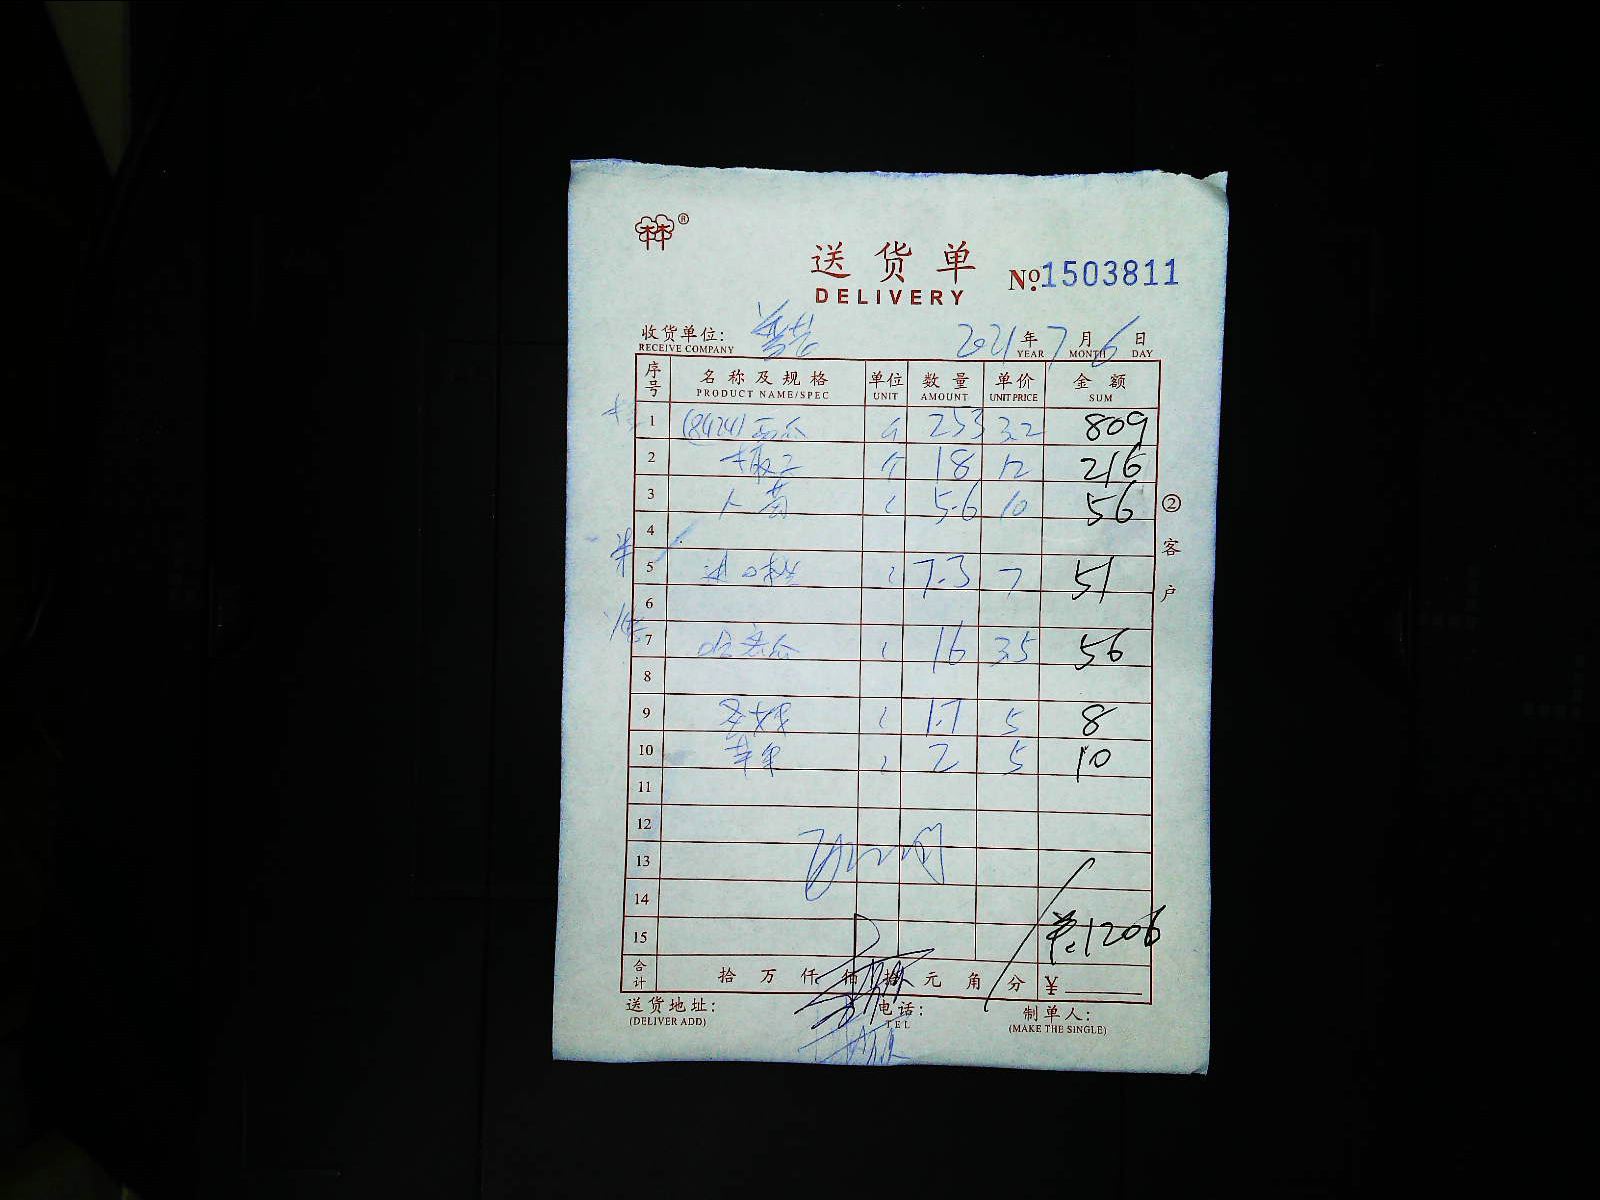 林®
送货单
DELIVERY
No.1503811
收货单位:
RECEIVE COMPANY
2021年7月6日
YEAR MONTH DAY
序号 名称及规格 单位 数量 单价 金额
PRODUCT NAME/SPEC UNIT AMOUNT UNIT PRICE SUM
1 (8424)西瓜 个 253 3.2 809
2 个 18 12 216
3 5.6 10 56
4
5 7.3 7 51
6
7 哈密瓜 16 3.5 56
8
9 1.7 5 8
10 2 5 10
11
12
13
14
15 1206
合计 拾 万 仟 佰 拾 元 角 分 ¥
②客户
送货地址: 电话: 制单人:
(DELIVER ADD) TEL (MAKE THE SINGLE)